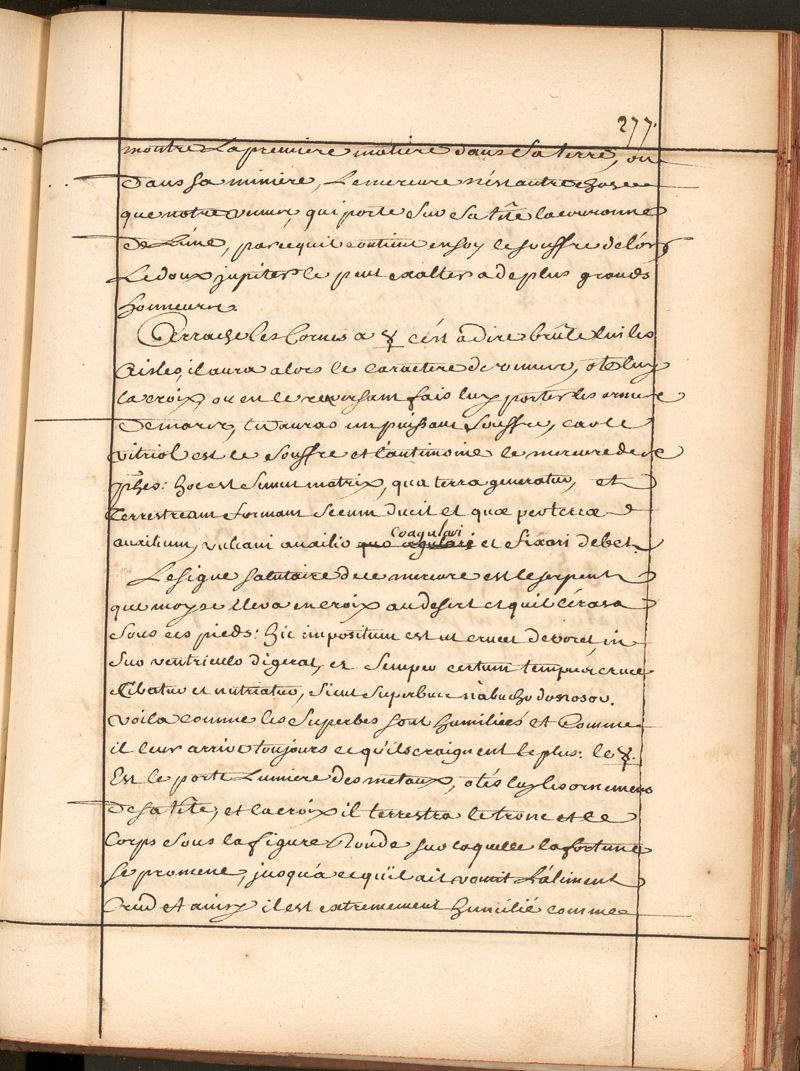 277.
montre La premiere matiere dans Sa terre, ou
Dans Sa miniere, Le mercure n'est autre chose
que notre venus, qui porte Sur Sa tête la couronne
de Lune, parcequil contient en soy le souffre de l'or,
Le doux jupiter le peut exalter a de plus grands
honneurs.
Arrache les Cornes a ☿ c'est a dire brûle lui les
Aisles, il aura alors le caractere de venus, ote luy
la croix, ou en le reversant fais luy porter les armes
De mars, tu auras un puissant Souffre, car le
vitriol est le Souffre et l'antimoine le mercure des
Phes: hoc est Simul matrix, qua terra generatur, et
terrestream formam Secum ducit et quæ pro terræ
auxilium, vulcani auxilio coagulari et fixari debet.
Le signe Salutaire de ce mercure est le serpent
que moyse eleva en croix au desert et qu'il écrasa
Sous ces pieds: hic impositum est ut crucem devoret, in
Suo ventriculo digerat, et Semper certum tempus cruce
Cibatur et nutriatur, Sicut Superbus nabuchodonosor.
voila comme les Superbes sont humiliées et Comme
il leur arrive toujours ce qu'ils craignent le plus: le ☿.
Est le porte Lumiere des metaux, otés luy les ornemens
de sa tête, et la croix il terrestra le tronc et le
Corps Sous la figure Ronde sur laquelle la fortune
se promene, jusqu'a ce qu'il ait vomit L'aliment
Crud et ainsy il est extremement humilié comme